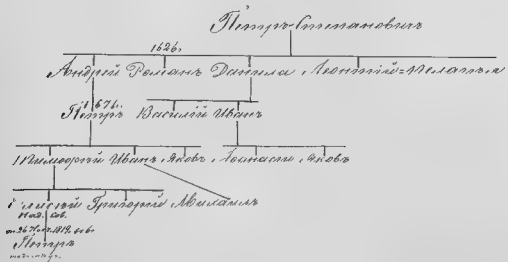 Петръ Степановичъ
1626 г.
Андрей Романъ Данила Леонтій=Пелагея
1676 г.
Петръ Василій Иванъ
Тимофѣй Иванъ Яковъ Аѳанасій Яковъ
Елисѣй Григорій Михаилъ
Над. Сов.
Петръ